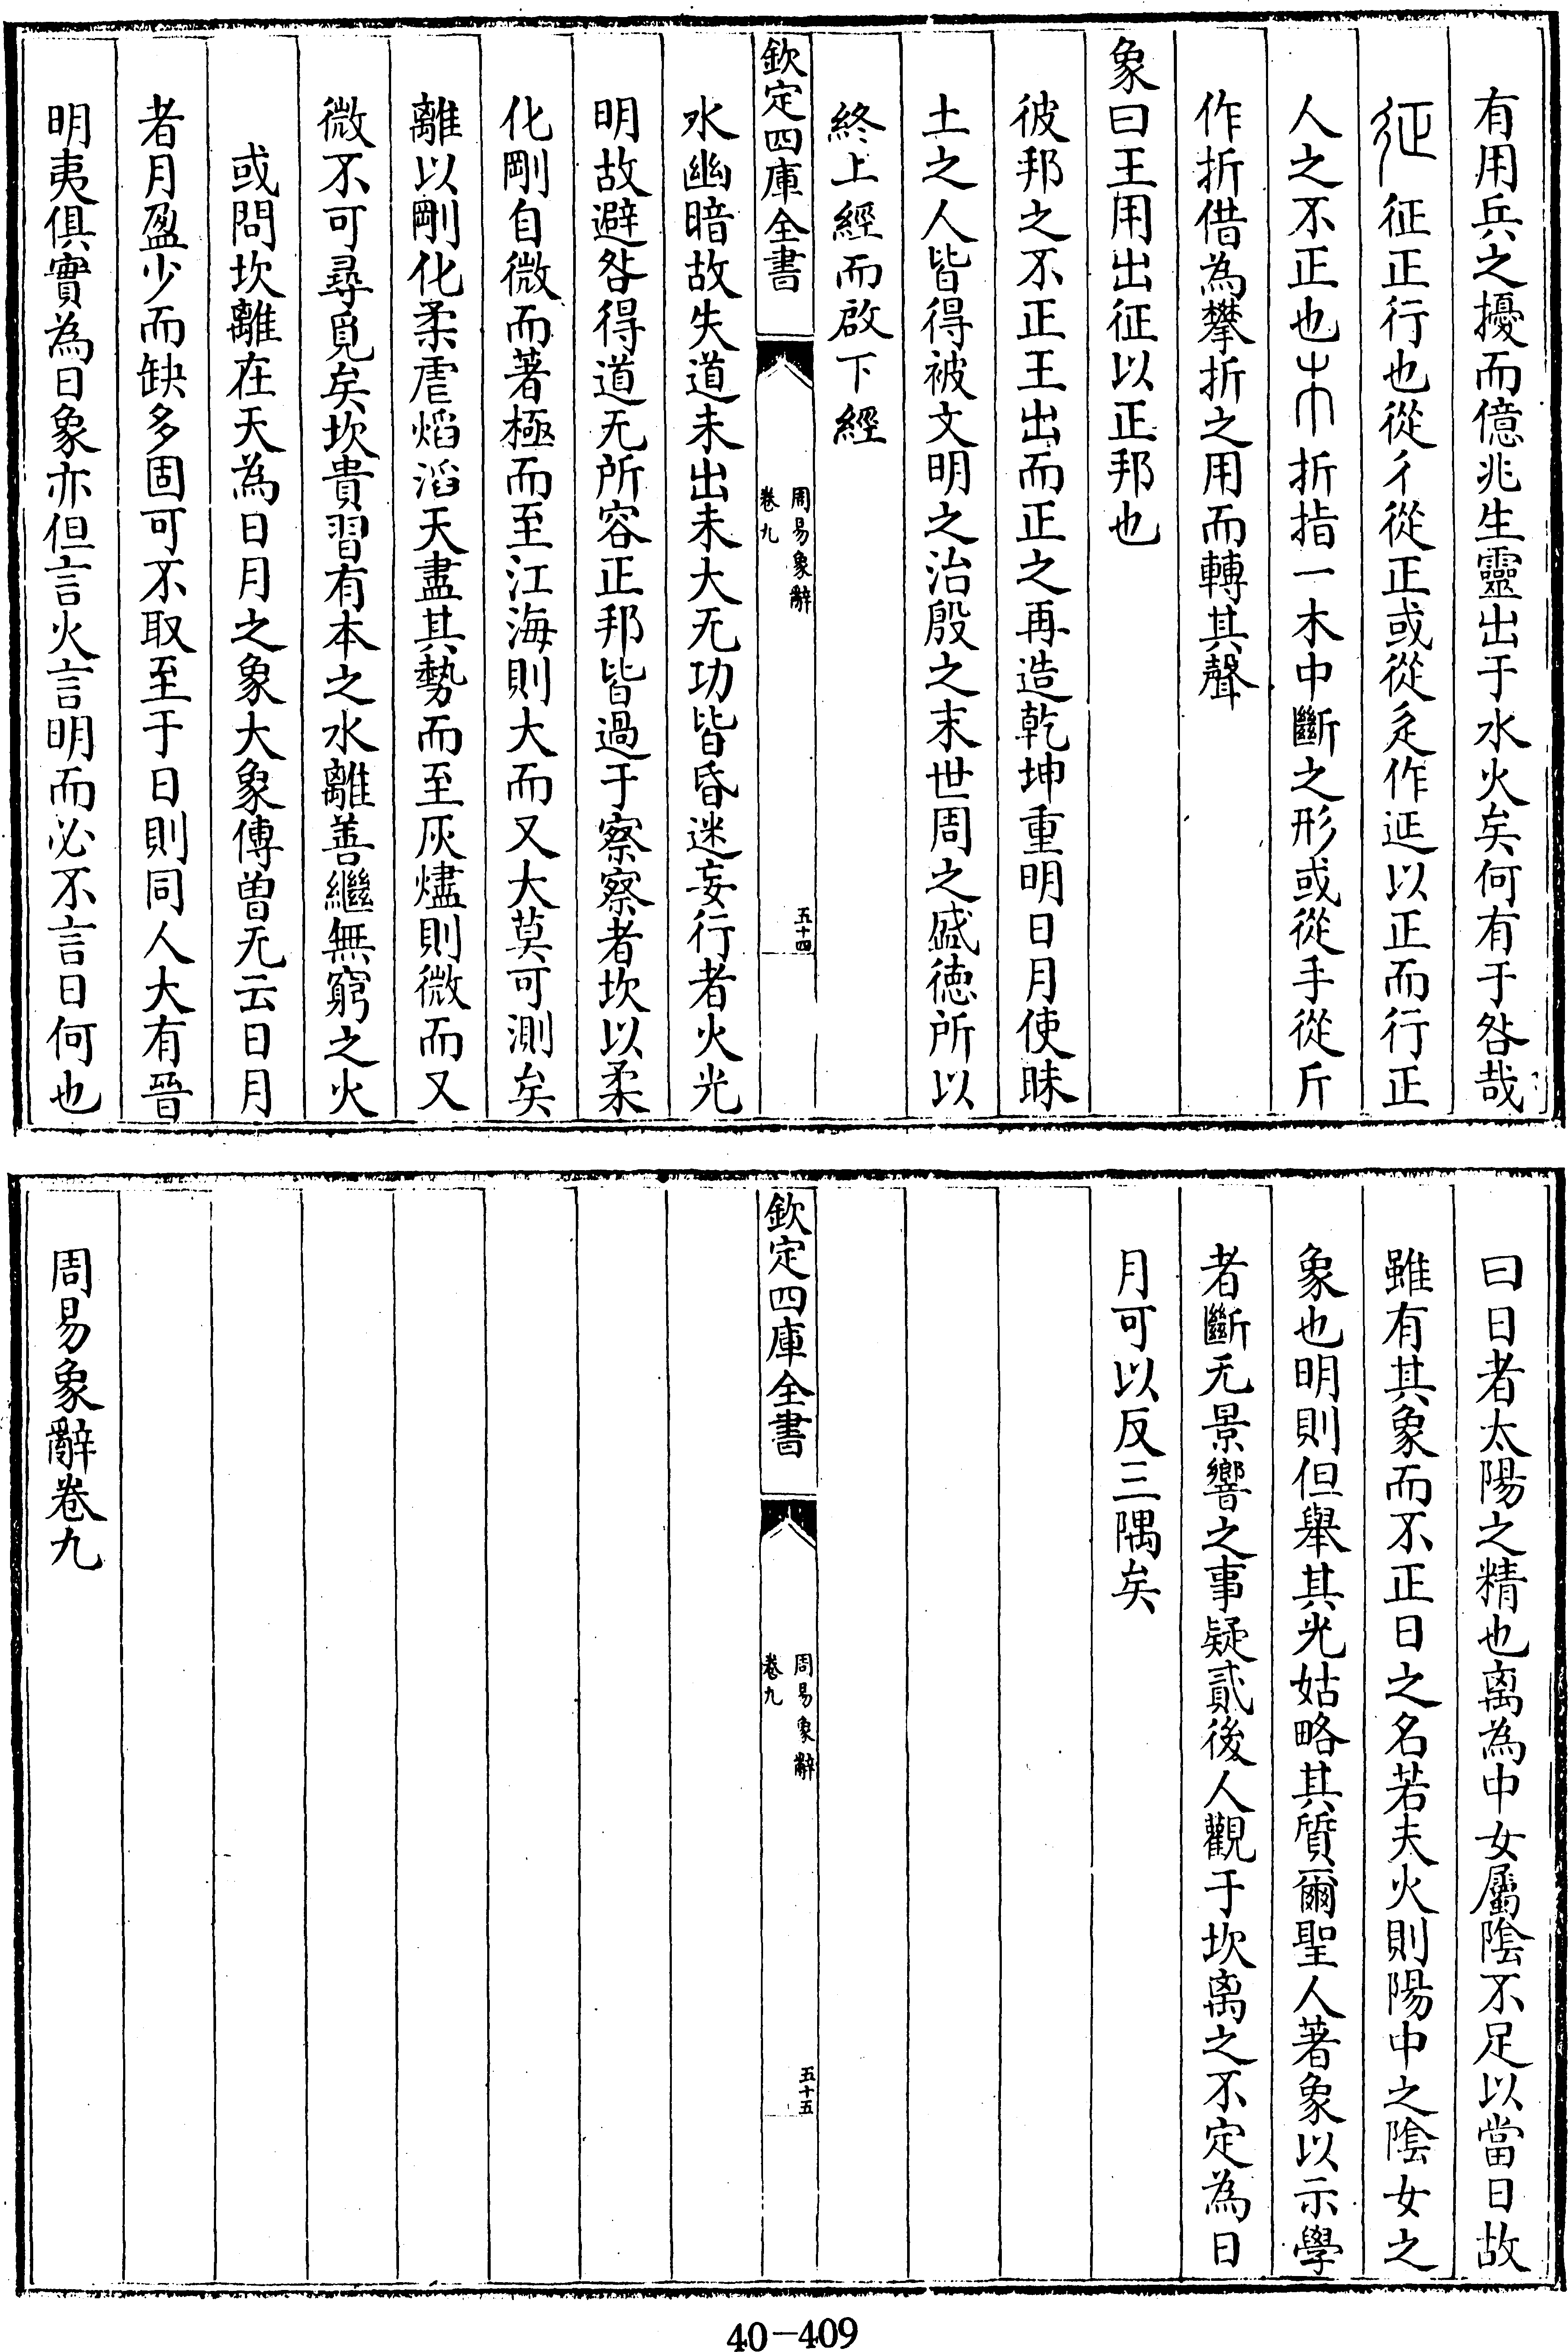 有用兵之擾而億兆生靈出于水火矣何有于咎哉
征正行也從彳從正或從辵作延以正而行正
人之不正也折指一木中斷之形或從手從斤
作折借為攀折之用而轉其聲
象曰王用出征以正邦也
彼邦之不正王出而正之再造乾坤重明日月使昧
土之人皆得被文明之治殷之末世周之盛德所以
終上經而啟下經
欽定四庫全書
周易象辭
卷九
五十四
水幽暗故失道未出未大无功皆昏迷妄行者火光
明故避咎得道无所容正邦皆過于察察者坎以柔
化剛自微而著極而至江海則大而又大莫可測矣
離以剛化柔虐焰滔天盡其勢而至灰燼則微而又
微不可尋覓矣坎貴習有本之水離善繼無窮之火
或問坎離在天為日月之象大象傳曽无云日月
者月盈少而缺多固可不取至于日則同人大有晉
明夷俱實為日象亦但言火言明而必不言日何也
曰日者太陽之精也离為中女屬陰不足以當日故
雖有其象而不正日之名若夫火則陽中之陰女之
象也明則但舉其光姑略其質爾聖人著象以示學
者斷无景響之事疑貳後人觀于坎离之不定為日
月可以反三隅矣
欽定四庫全書
周易象辭
卷九
五十五
周易象辭卷九
40-409